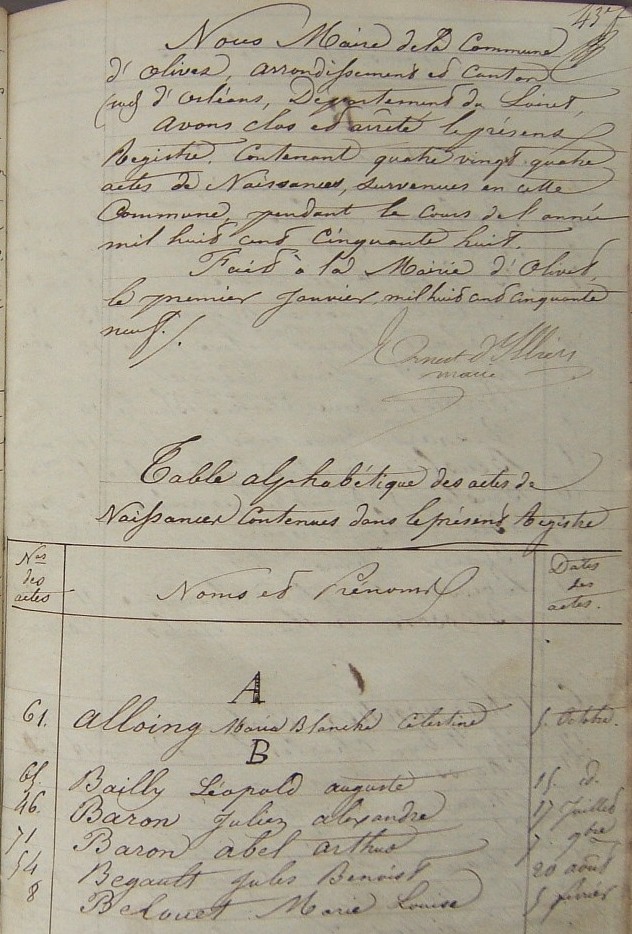 43
Nous Maire de la Commune
d'Olivet, arrondissement et Canton
(sud) d'Orléans, Département du Loiret,
avons clos et arrêté le présent
Registre, Contenant quatre vingt quatre
actes de Naissances, survenues en cette
Commune, pendant le Cours de l'année
mil huit cent Cinquante huit.
Fait à la Mairie d'Olivet,
le premier Janvier, mil huit cent Cinquante
neuf./.
Ernest d'Illiers
maire
Table alphabétique des actes de
Naissances Contenues dans le présent Registre
Nos des actes Noms et Prénoms Dates des actes.
A
61. Alloing Maria Blanche Célestine 5. Octobre.
B
65. Bailly Léopold auguste 15. id.
46. Baron Julien alexandre 17 Juillet
71 Baron abel arthur 7. 9bre
54 Begault Jules Benoist 20 août
8 Belouet Marie Louise 5 février